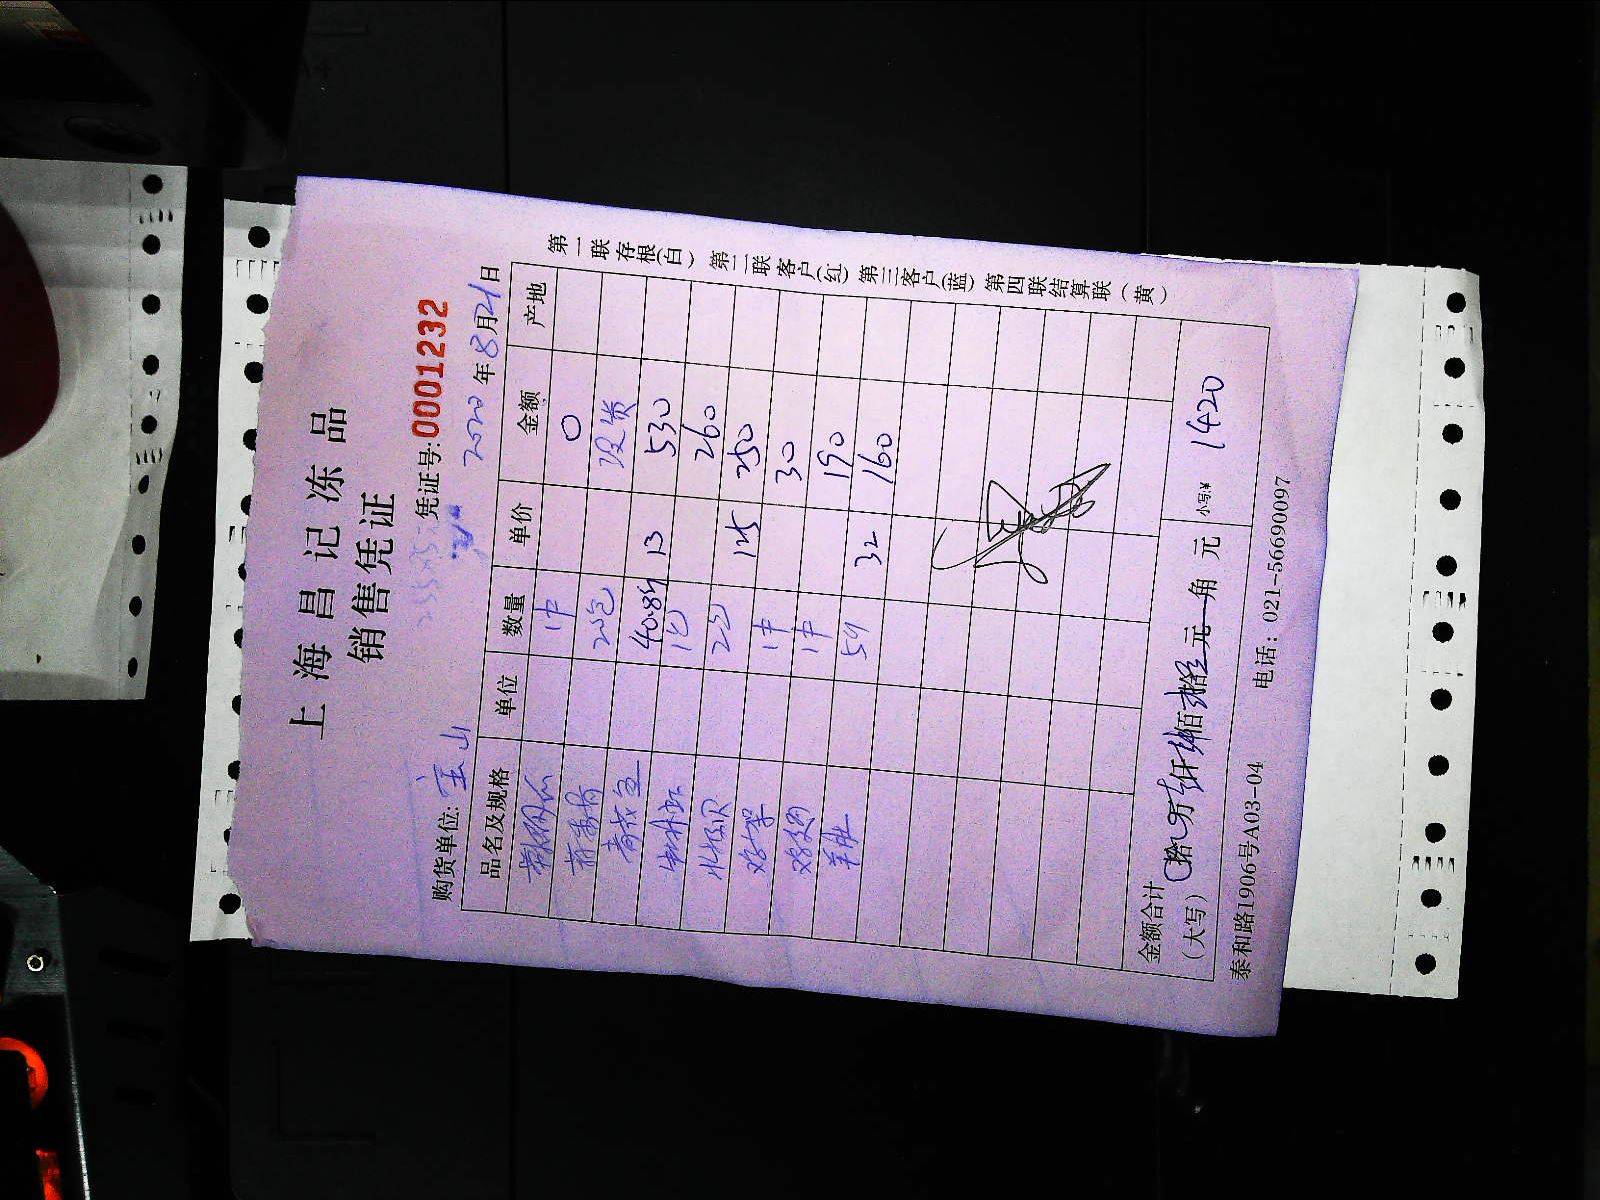 上海昌记冻品
销售凭证
凭证号:0001232
购货单位: 宝山 2020年8月21日
品名及规格 单位 数量 单价 金额 产地
1中 0
25包 没货
青衣鱼 40.8斤 13 530
1包 260
北极贝 2包 125 250
鸡架 1中 30
1中 190
羊肚 5斤 32 160
金额合计
(大写) 拾 万 仟 佰 元 角 元 小写¥ 1420
泰和路1906号A03-04 电话：021-56690097
第一联存根(白) 第二联客户(红) 第三客户(蓝) 第四联结算联(黄)